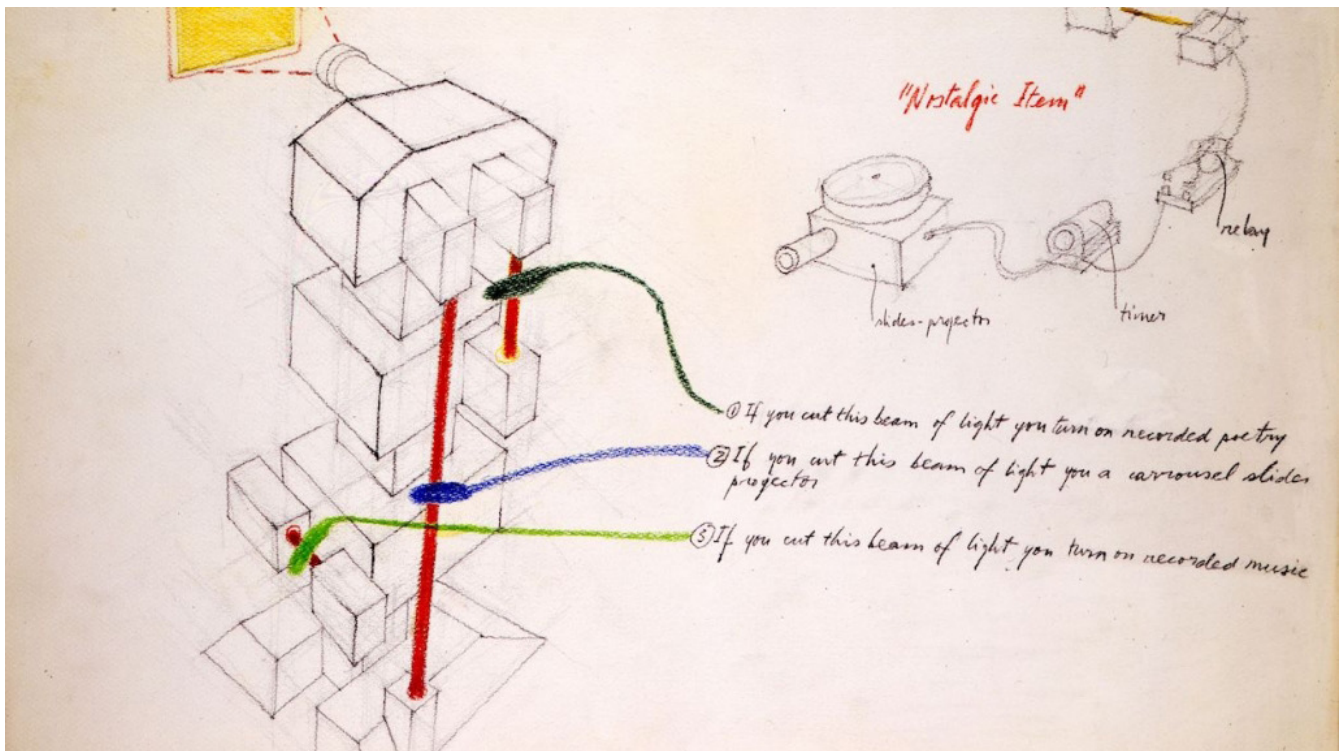 "Nostalgic Item"
relay
timer
slides-projector
① If you cut this beam of light you turn on recorded poetry
② If you cut this beam of light you a carrousel slides
progector
③ If you cut this beam of light you turn on recorded music